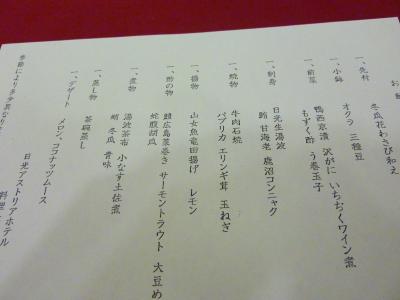 一、先付
冬瓜花わさび和え
一、小鉢
オクラ 三種豆
一、前菜
鴨西京漬 沢がに いちぢくワイン煮
もずく酢 う巻玉子
一、刺身
日光生湯波
鮪 甘海老 鹿沼コンニャク
一、焼物
牛肉石焼
パプリカ エリンギ茸 玉ねぎ
一、揚物
山女魚竜田揚げ レモン
一、酢の物
鱧広島菜巻き サーモントラウト 大豆め
蛇腹胡瓜
一、煮物
湯波茶巾 小なす土佐煮
蛸 冬瓜 青味
一、蒸し物
茶碗蒸し
一、デザート
メロン、ココナッツムース
季節により多少異なり
日光アストリアホテル
料理